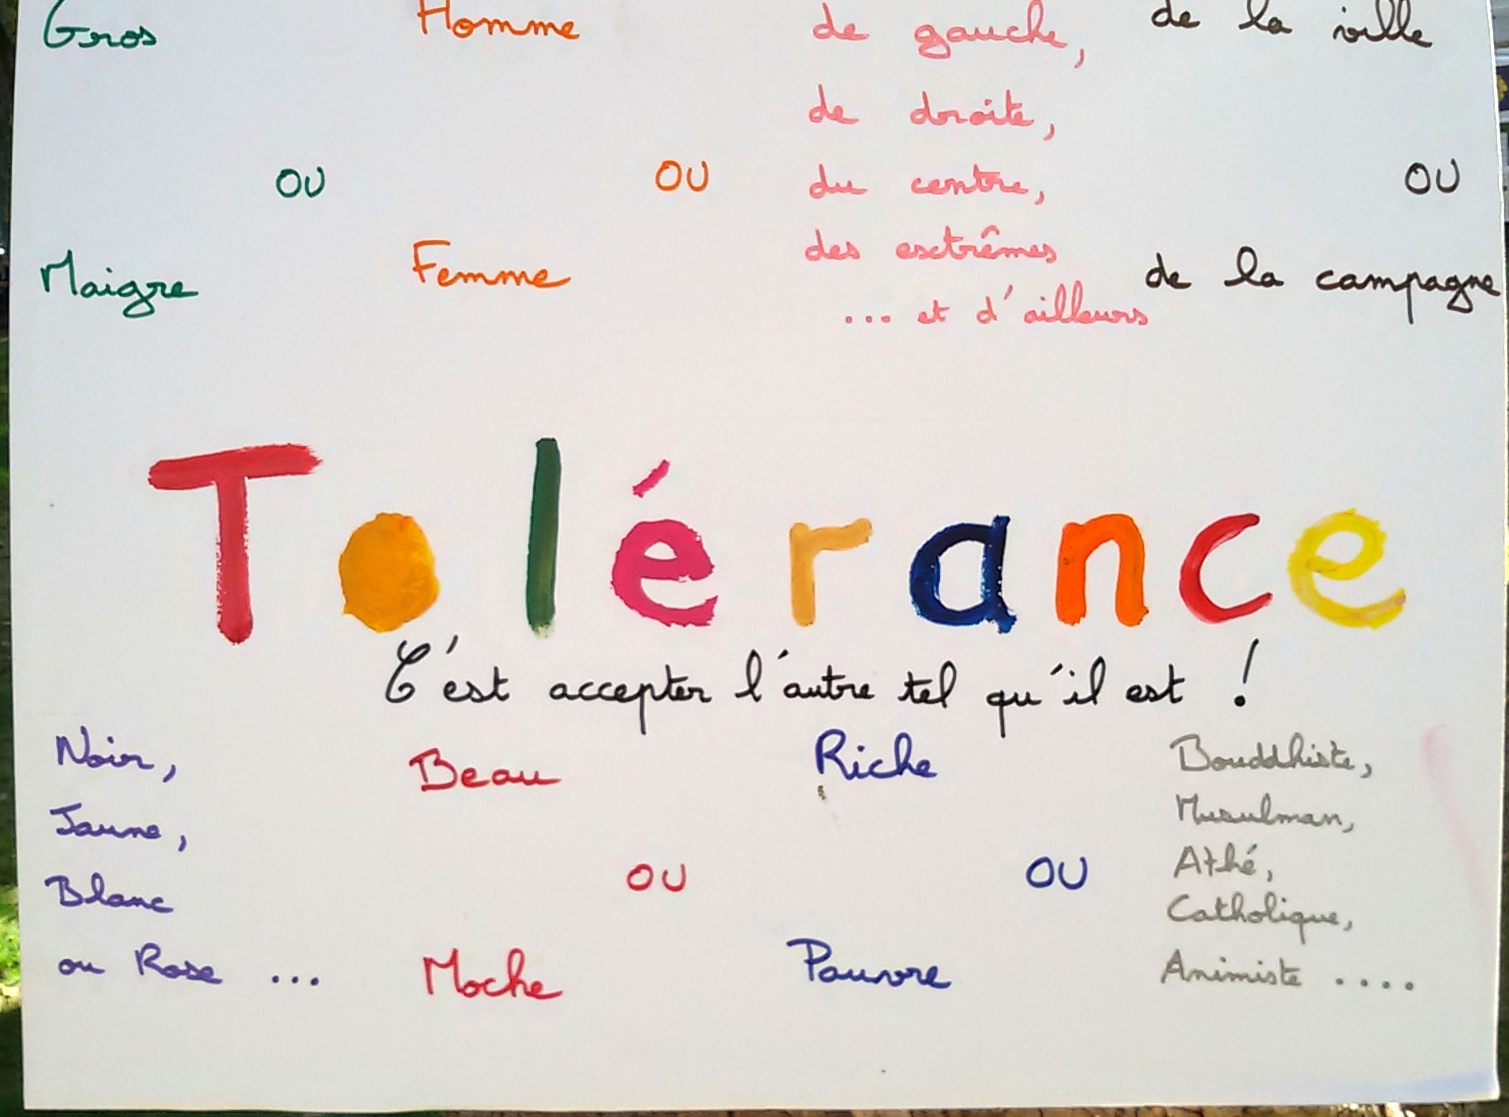 Gros
OU
Maigre
Homme
OU
Femme
de gauche,
de droite,
du centre,
des extrêmes
... et d'ailleurs
de la ville
OU
de la campagne
Tolérance
C'est accepter l'autre tel qu'il est !
Noir,
Jaune,
Blanc
ou Rose ...
Beau
OU
Moche
Riche
OU
Pauvre
Bouddhiste,
Musulman,
Athé,
Catholique,
Animiste ....